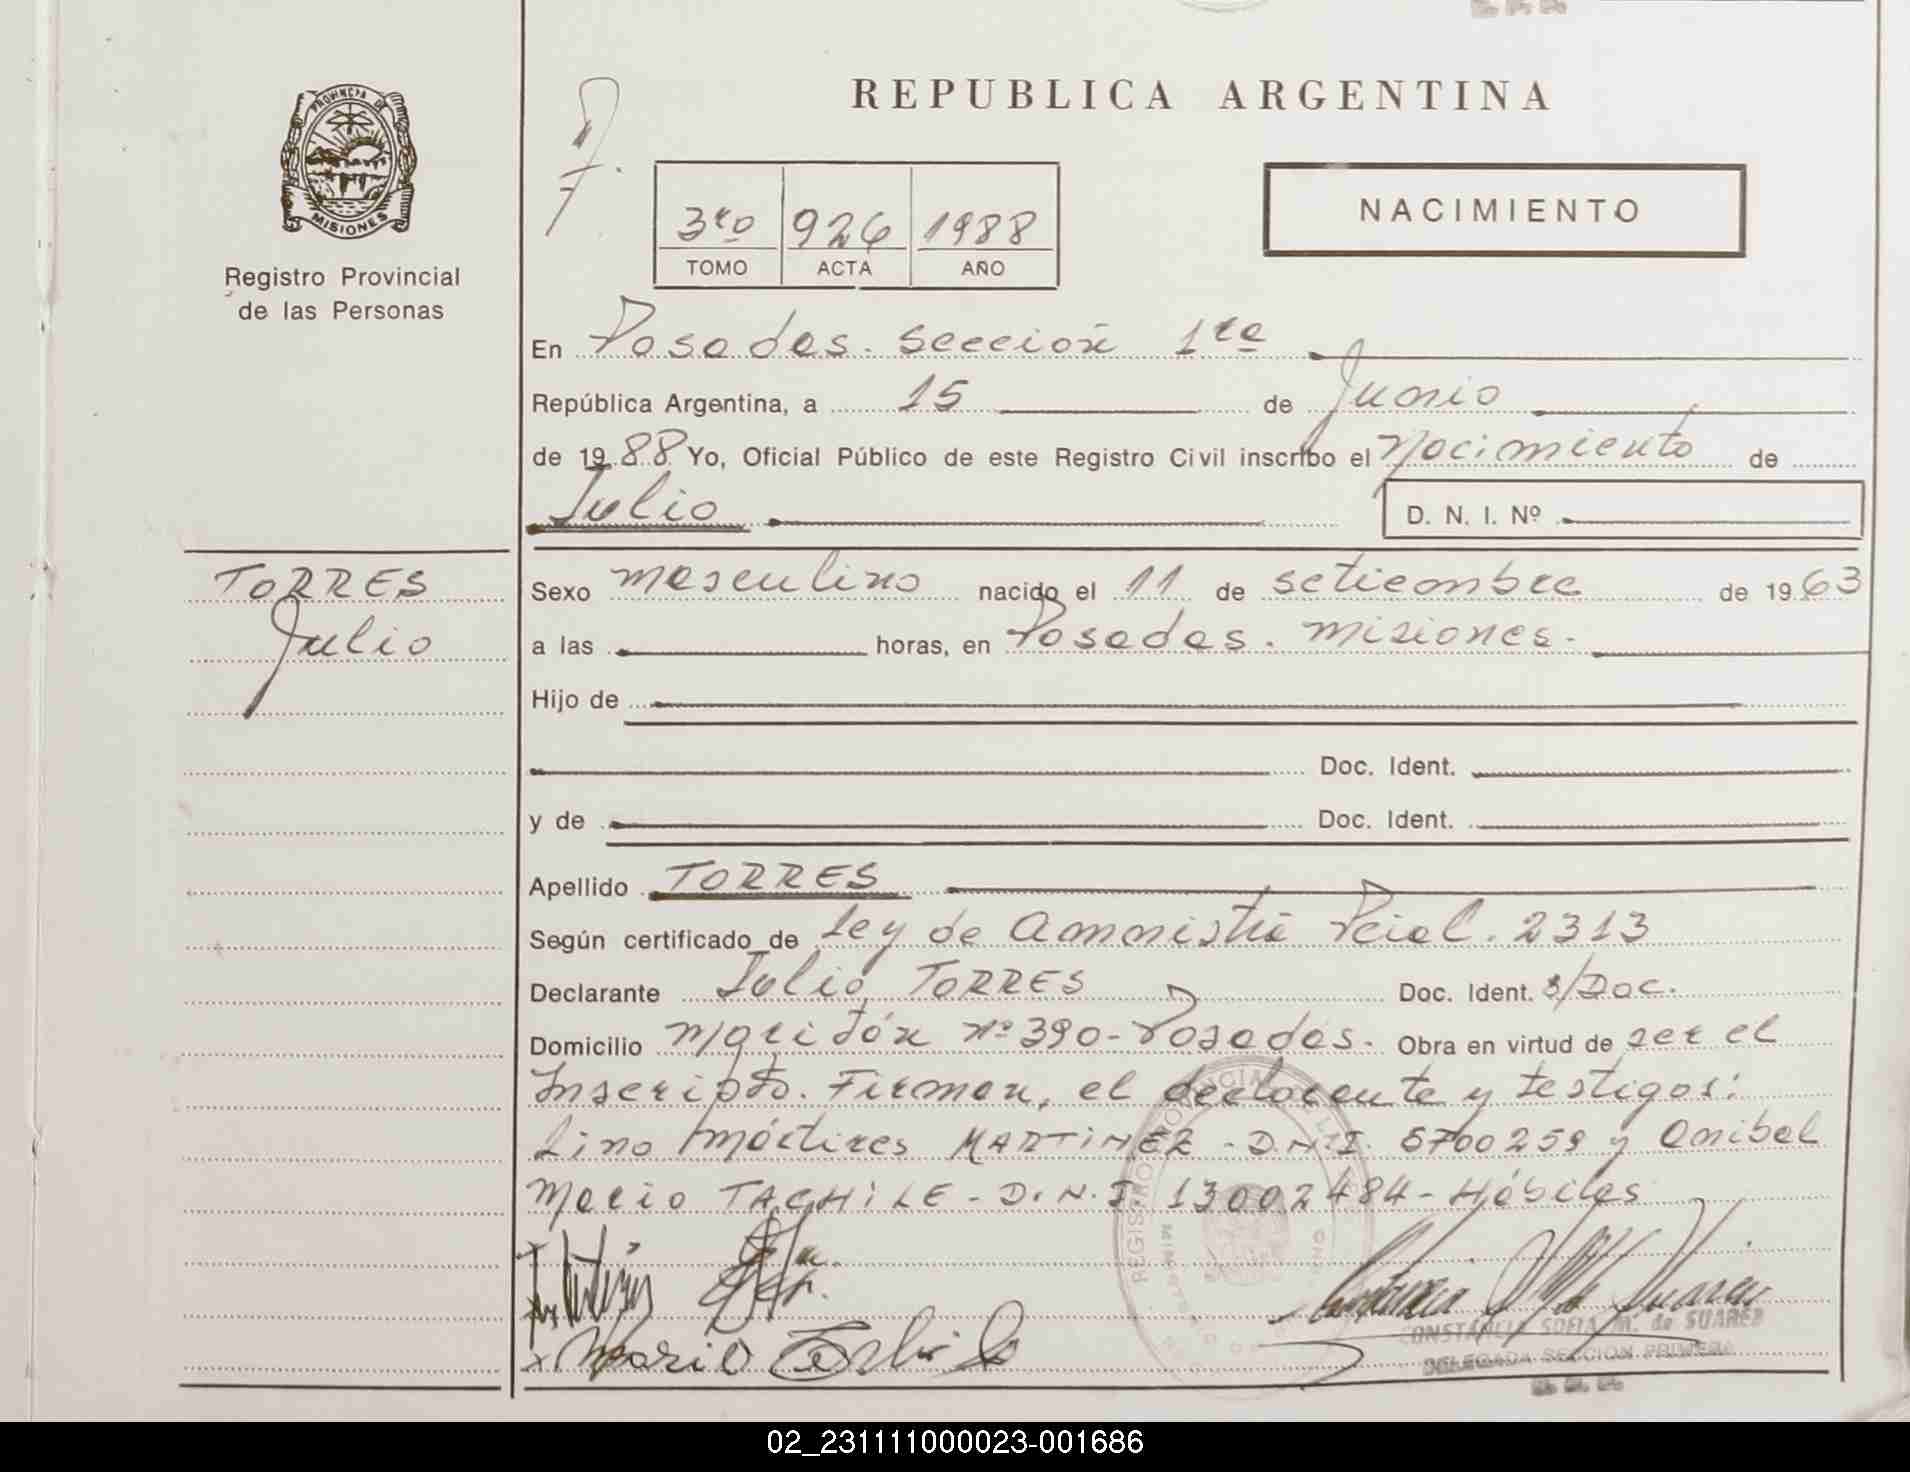 REPUBLICA ARGENTINA
PROVINCIA DE
MISIONES
Registro Provincial
de las Personas
3ro 926 1988
TOMO ACTA AÑO
NACIMIENTO
En Posadas. Sección 1ra
República Argentina, a 15 de Junio
de 1988 Yo, Oficial Público de este Registro Civil inscribo el Nacimiento de
Julio D. N. I. Nº
TORRES
Julio
Sexo masculino nacido el 11 de setiembre de 1963
a las horas, en Posadas. Misiones.
Hijo de
Doc. Ident.
y de Doc. Ident.
Apellido TORRES
Según certificado de Ley de Amnistía Pcial. 2313
Declarante Julio TORRES Doc. Ident. s/Doc.
Domicilio Nº 390-Posadas. Obra en virtud de ser el
Inscripto. Firman, el declarante y testigos:
Lino Mártires MARTINEZ - D.N.I. 5700259 y Anibal
Mario TACHILE - D.N.I 13002484 - Hábiles
CONSTANCIA SOFIA M. de SUAREZ
DELEGADA SECCION PRIMERA
02_231111000023-001686